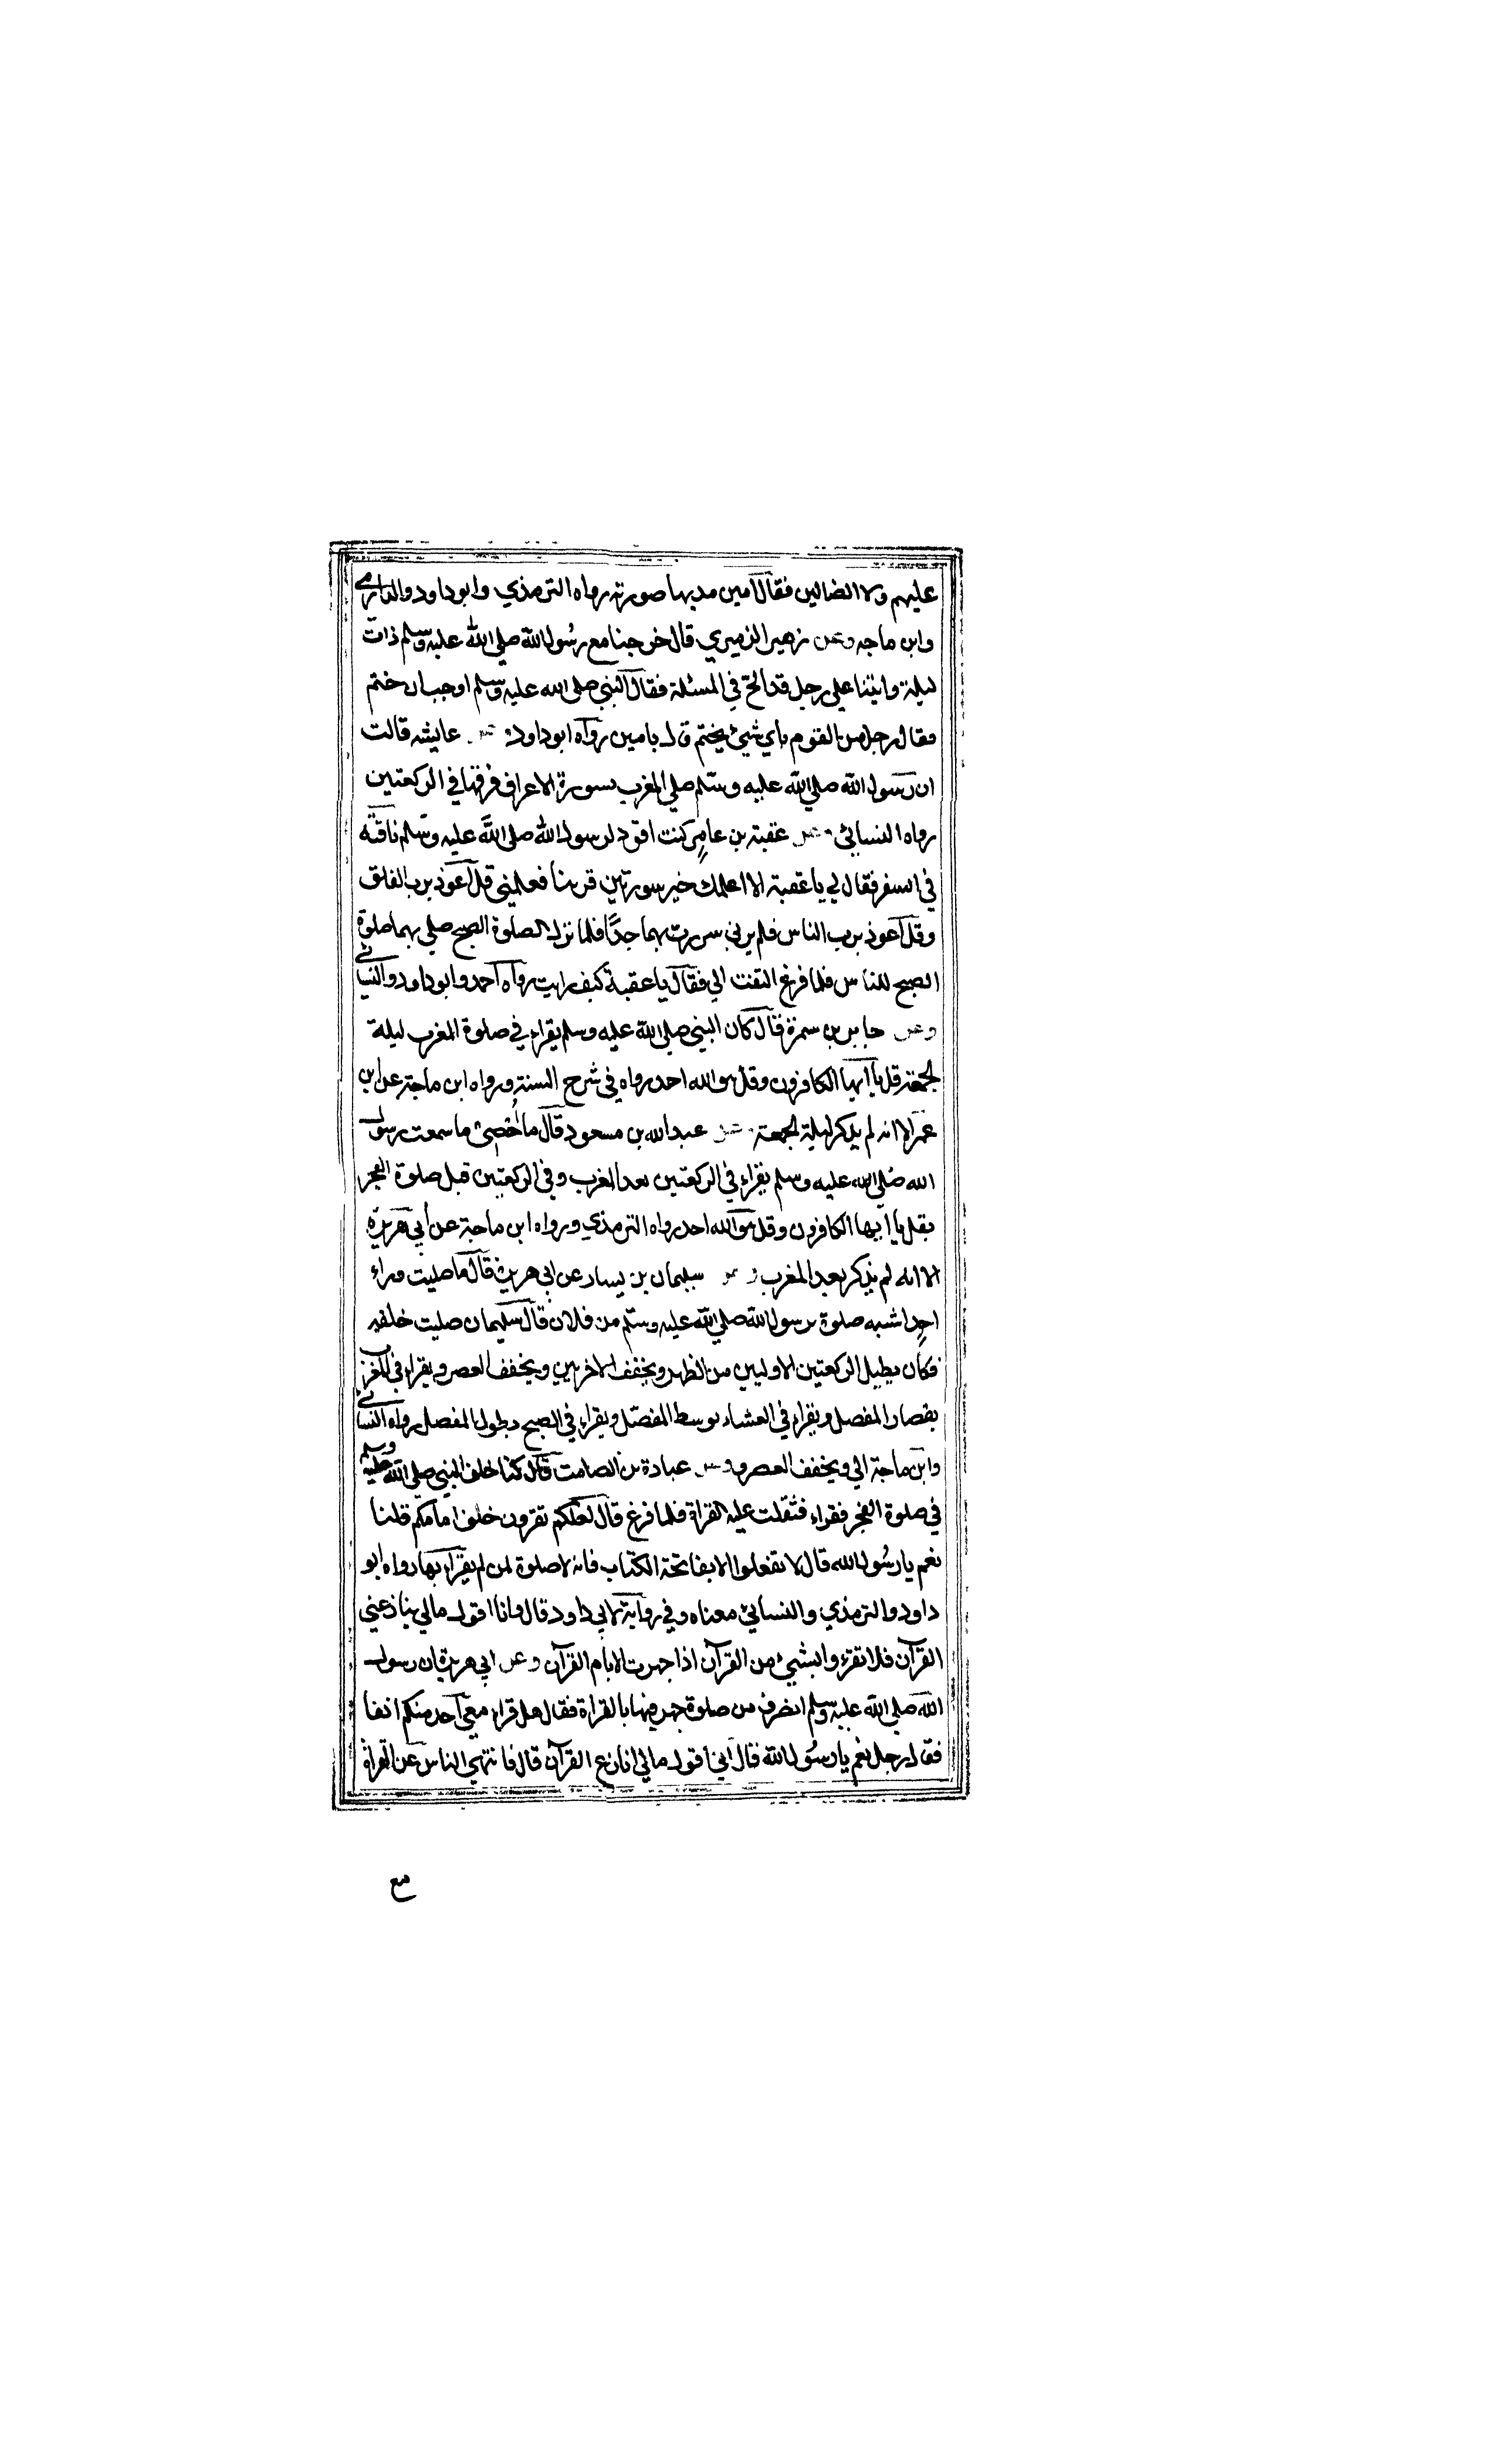 عليهم ولا الضالين فقال آمين مد بها صوته رواه الترمذي وابو داود والدارمي
وابن ماجه وعن زهير النميري قال خرجنا مع رسول الله صلي الله عليه وسلم ذات
ليلة واتينا علي رجل قد الح في المسئلة فقال النبي صلي الله عليه وسلم اوجب ان ختم
فقال رجل من القوم باي شيئ يختم قال بامين رواه ابو داود وعن عايشه قالت
ان رسول الله صلي الله عليه وسلم صلي المغرب بسورة الاعراف فرقها في الركعتين
رواه النسائي وعن عقبة بن عامر كنت اقود لرسول الله صلي الله عليه وسلم ناقته
في السفر فقال لي يا عقبة الا اعلمك خير سورتين قرئنا فعلمني قل اعوذ برب الفلق
وقل اعوذ برب الناس فلم يرني سررت بهما جدًّا فلما نزل لصلوة الصبح صلي بهما صلوة
الصبح للناس فلما فرغ التفت الي فقال يا عقبة كيف رايت رواه احمد وابو داود والنسائي
وعن جابر بن سمرة قال كان النبي صلي الله عليه وسلم يقراء في صلوة المغرب ليلة
الجمعة قل يا ايها الكافرون وقل هو الله احد رواه في شرح السنة ورواه ابن ماجة عن ابن
عمر الا انه لم يذكر ليلة الجمعة وعن عبد الله بن مسعود قال ما أحصي ما سمعت رسول
الله صلي الله عليه وسلم يقراء في الركعتين بعد المغرب وفي الركعتين قبل صلوة الفجر
بقل يا ايها الكافرون وقل هو الله احد رواه الترمذي ورواه ابن ماجة عن أبي هريرة
الا انه لم يذكر بعد المغرب وعن سليمان بن يسار عن ابي هريرة قال ما صليت وراء
احد اشبه صلوة برسول الله صلي الله عليه وسلم من فلان قال سليمان صليت خلفه
فكان يطيل الركعتين الاوليين من الظهر ويخفف الاخريين ويخفف العصر ويقراء في المغرب
بقصار المفصل ويقراء في العشاء بوسط المفصل ويقراء في الصبح بطول المفصل رواه النسائي
وابن ماجة الي ويخفف العصر وعن عبادة بن الصامت قال كنا خلف النبي صلي الله عليه وسلم
في صلوة الفجر فقراء فثقلت عليه القراة فلما فرغ قال لعلكم تقرون خلف امامكم قلنا
نعم يا رسول الله قال لا تفعلوا الا بفاتحة الكتاب فانه لا صلوة لمن لم يقراء بها رواه ابو
داود والترمذي والنسائي معناه وفي رواية لابي داود قال وانا اقول مالي ينازعني
القرآن فلا تقرءوا بشيئ من القرآن اذا جهرت الا بام القرآن وعن ابي هريرة ان رسول
الله صلي الله عليه وسلم انصرف من صلوة جهر فيها بالقراة فقال هل قراء معي احد منكم انفا
فقال رجل نعم يا رسول الله قال اني اقول مالي انازع القرآن قال فانتهي الناس عن القراة
مع